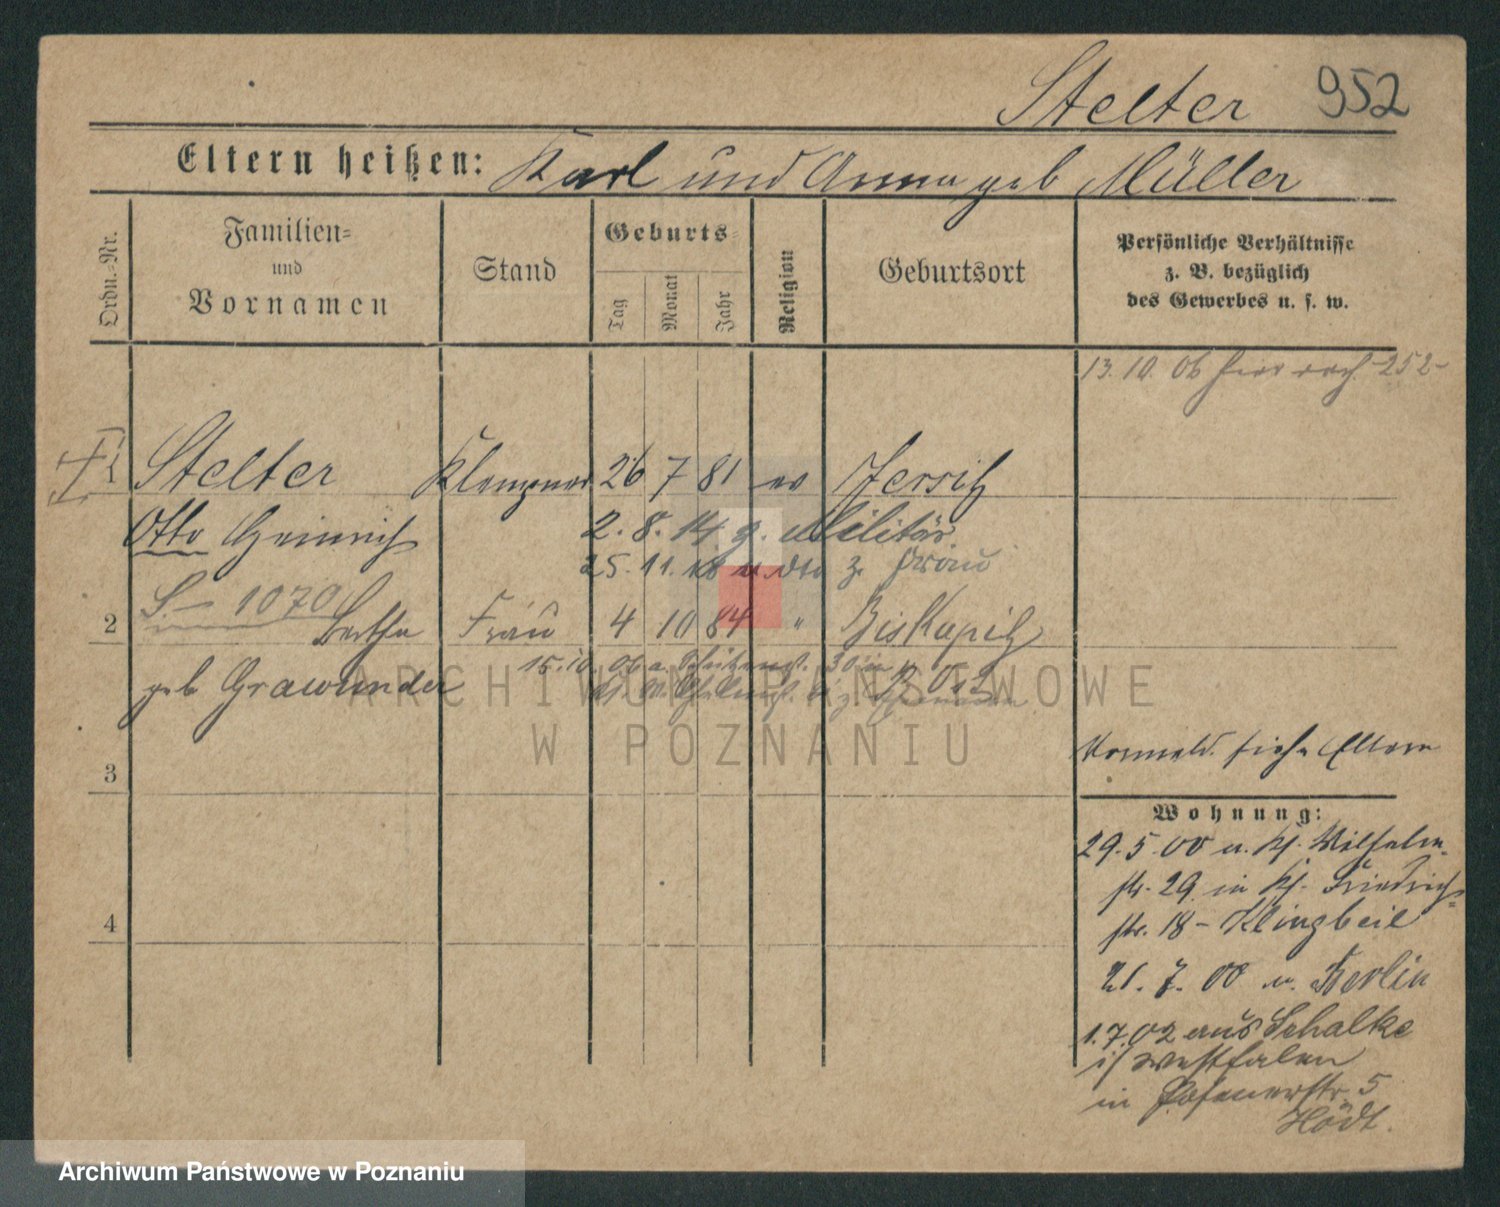 Stelter 952
Eltern heißen: Karl und Anna geb Müller
Ordn.-Nr.
Familien-
und
Vornamen
Stand
Geburts-
Tag
Monat
Jahr
Religion
Geburtsort
Persönliche Verhältnisse
z. B. bezüglich
des Gewerbes u. s. w.
13.10.06 hier nach 252
1 Stelter Klempner 26 7 81 ev Jersitz
Otto Heinrich 2. 8. 14 z. Militär
25. 11. 18 v. dto z. Frau
S- 1070
2 Bertha Frau 4 10 84 " Biskupitz
geb Grawunder 15.10.06 a.
3
Vormeld. siehe Eltern
Wohnung:
29.5.00 u. Wilhelm-
str. 29 in Friedrich-
str. 18 - Klingbeil
21. 7. 00 n. Berlin
1.7.02 aus Schalke
i/ Westfalen
in Posenerstr. 5
4
ARCHIWUM PAŃSTWOWE
W POZNANIU
Archiwum Państwowe w Poznaniu